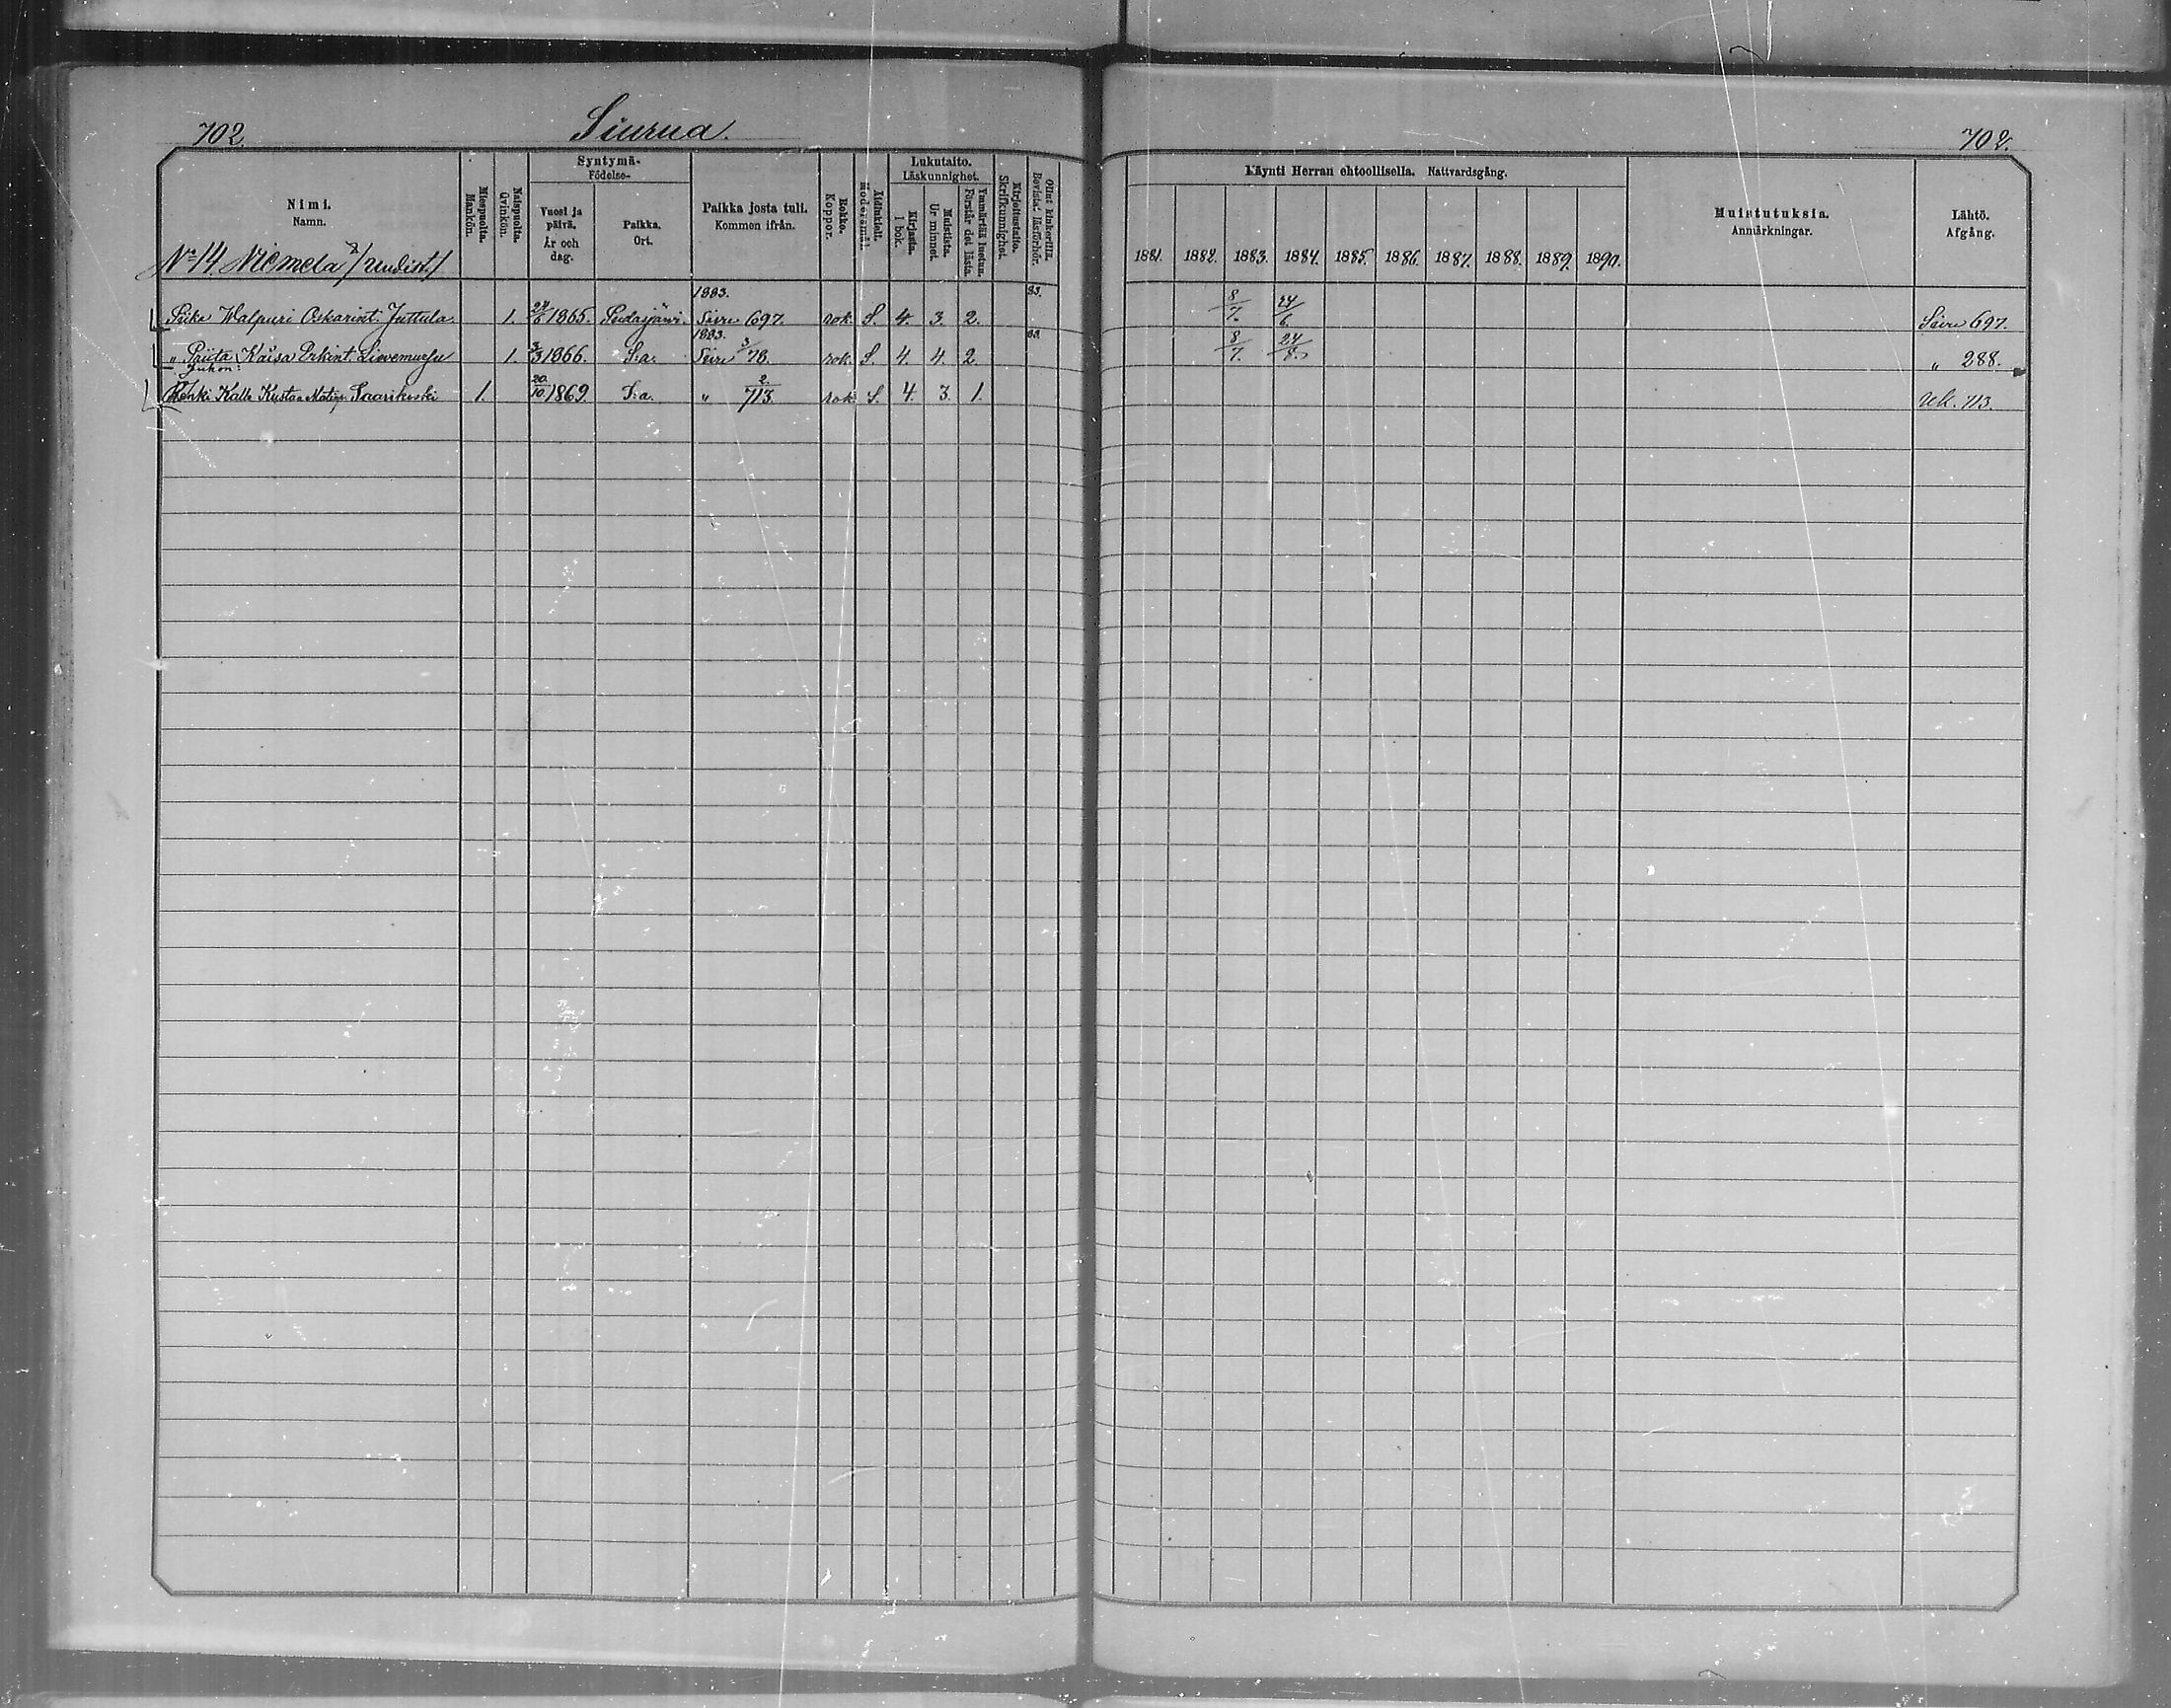 702. Siurua. 702.
Nimi. Namn.
Miespuolta. Mankön.
Naispuolta. Qvinkön.
Syntymä- Födelse-
Vuosi ja päivä. År och dag.
Paikka. Ort.
Paikka josta tuli. Kommen ifrån.
Rokko. Koppor.
Äidinkieli. Modersmål.
Lukutaito. Läskunnighet.
Kirjasta. I bok.
Muistista. Ur minnet.
Ymmärtää luetun. Förstår det lästa.
Kirjoitustaito. Skrifkunnighet.
Ollut kinkerillä. Bevistat läsförhör.
Käynti Herran ehtoollisella. Nattvardsgång.
1881. 1882. 1883. 1884. 1885. 1886. 1887. 1888. 1889. 1890.
Muistutuksia. Anmärkningar.
Lähtö. Afgång.
No 14 Niemelä /uudist./
1883. 83.
Piika Walpuri Oskarint. Juttula. 1. 1865. Pudasjärvi. Siiru 697. rok. S. 4. 3. 2. 8/7. 24/6. Siiru 697.
1883. 83.
„ Priita Kaisa Erkint. Lievemuesu 1. 3/3 1866. S:a. Siiru 3/78. rok. S. 4. 4. 2. 8/7. 24/8. „ 288.
Renki Kalle Kustaa Matinp. Saarikoski 1. 20/10 1869. S:a. „ 2/713. rok. S. 4. 3. 1. Uk. 713.